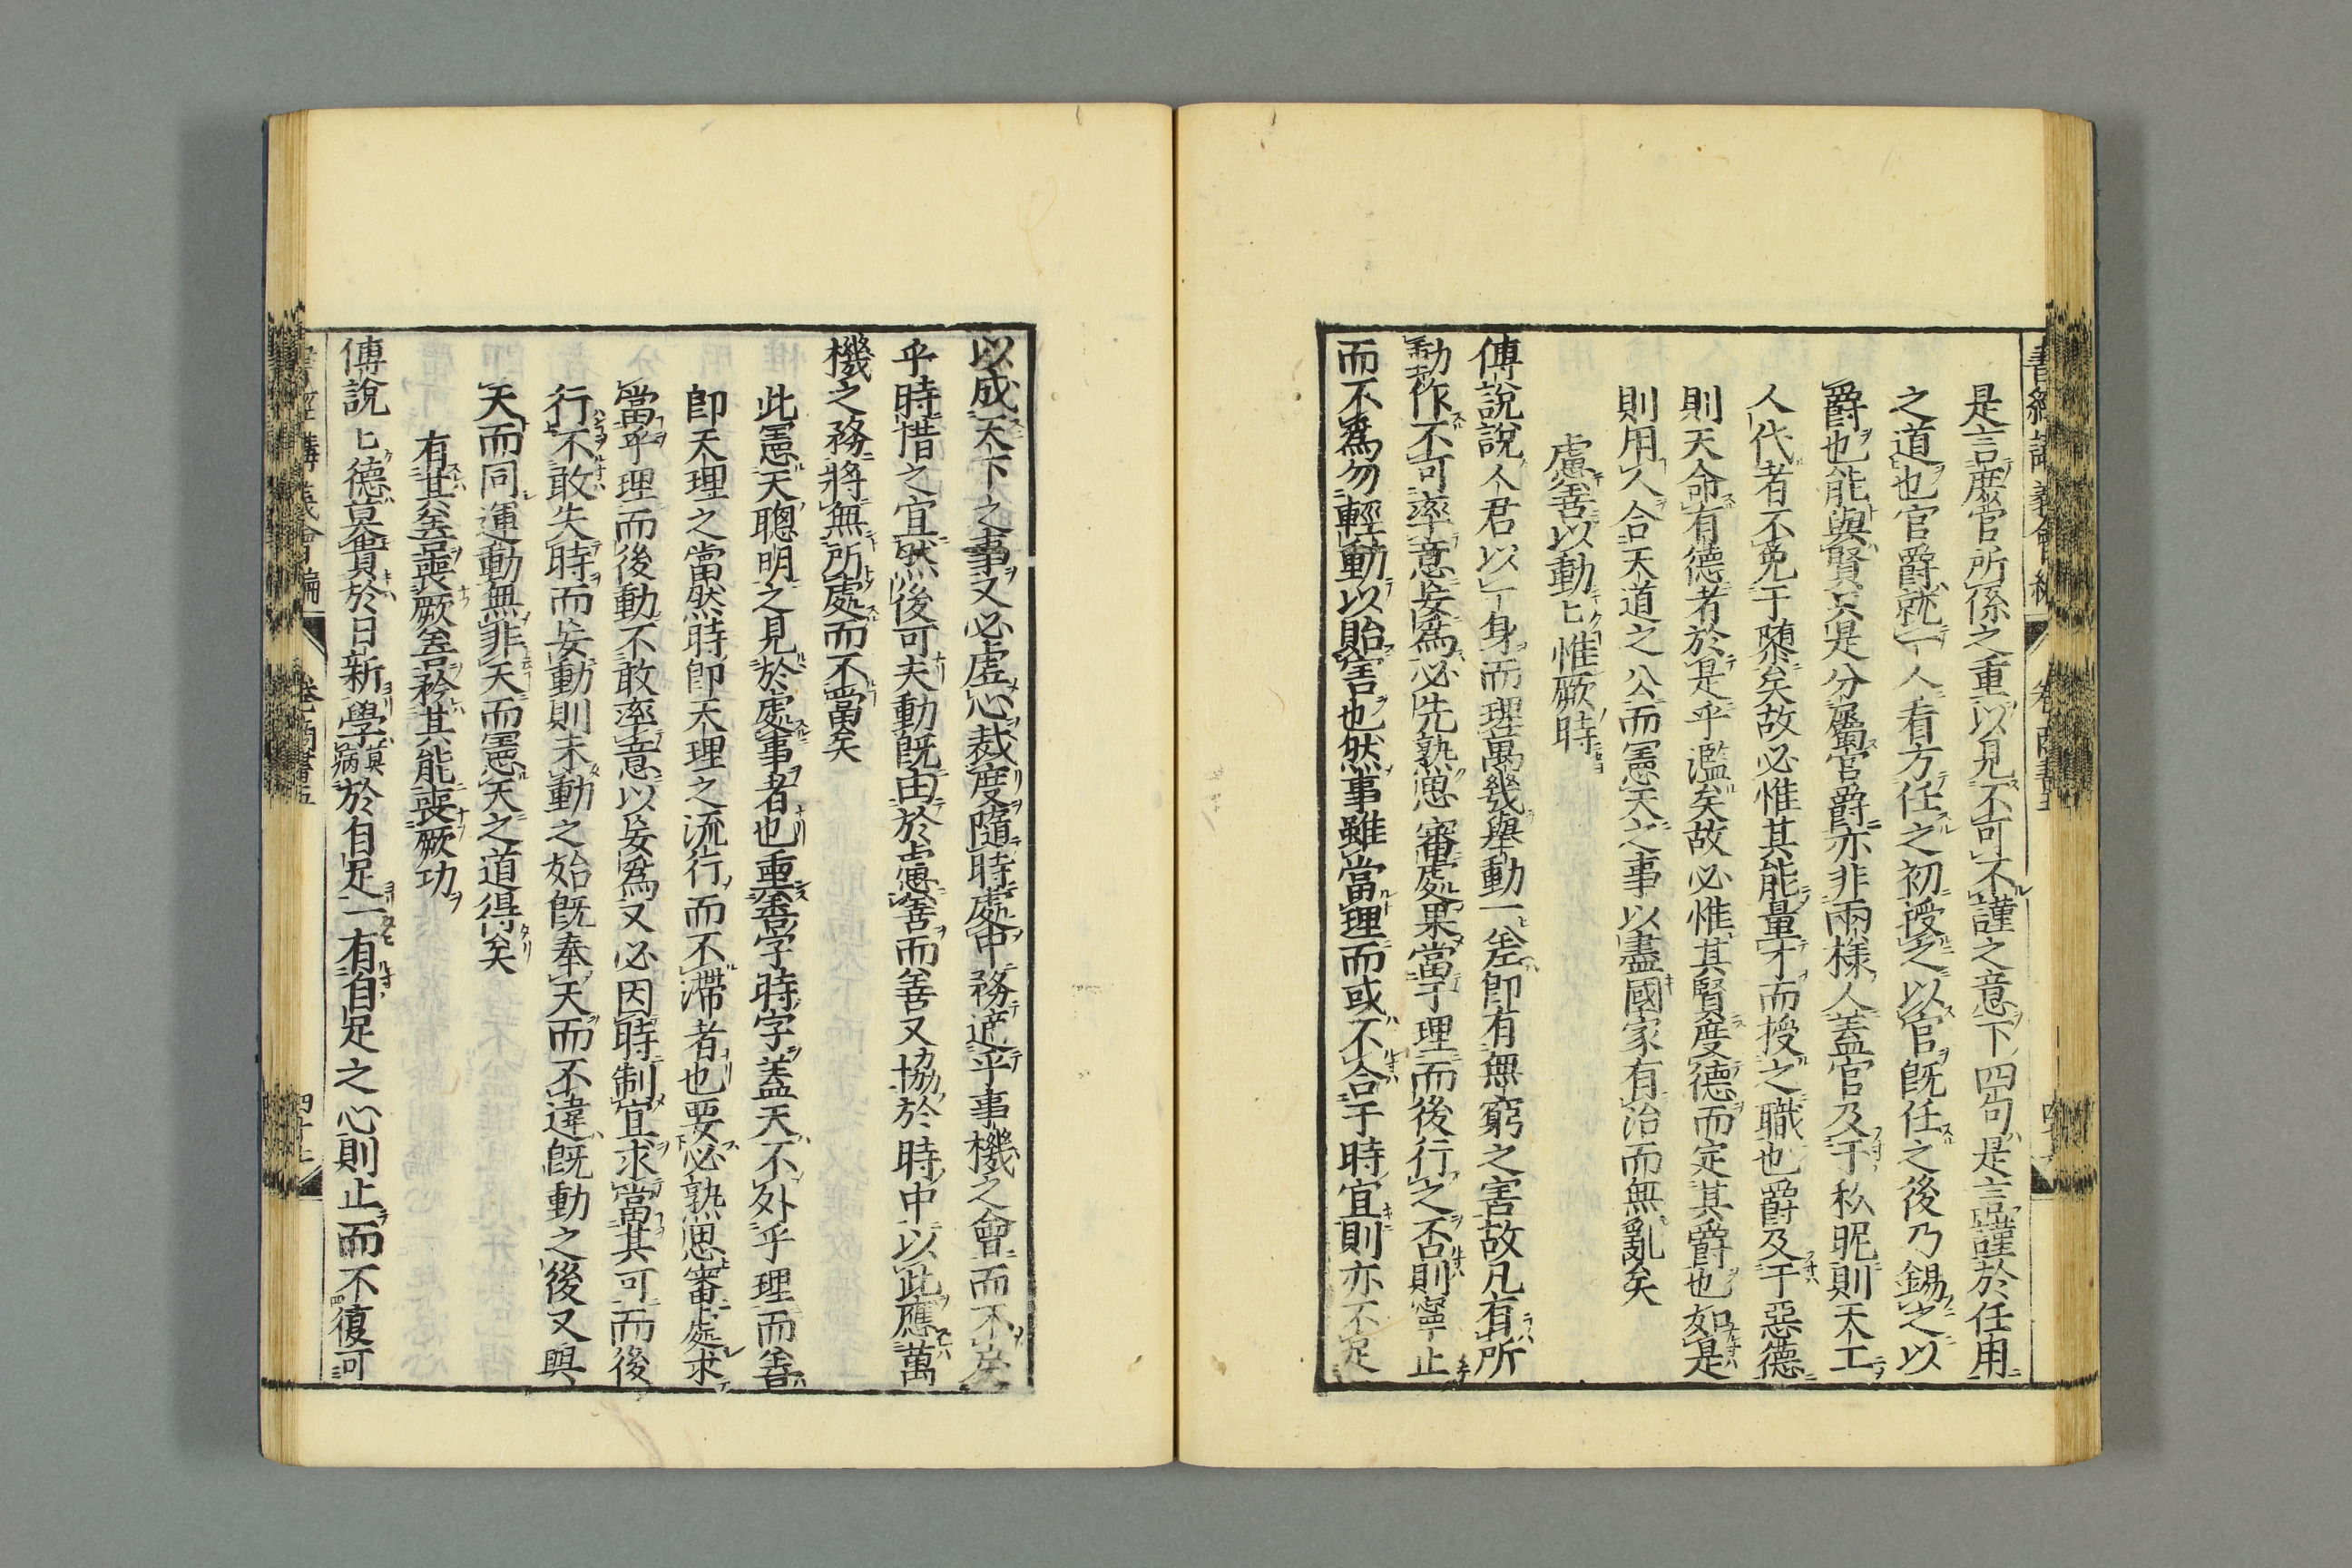 是言庶官所係之重以見不可不謹之意下四句是言謹於任用
之道也官爵就一人看方任之初授之以官既任之後乃錫之以
爵也能與賢只是分屬官爵亦非兩樣人蓋官及于私昵則天工
人代者不免于隳矣故必惟其能量才而授之職也爵及于惡德
則天命有德者於是乎濫矣故必惟其賢度德而定其爵也如是
則用人合天道之公而憲天之事以盡國家有治而無亂矣
慮善以動匕惟厥時
傅說說人君以一身而理萬幾舉動一差即有無窮之害故凡有所
動作不可率意妄為必先熟思審處果當于理而後行之否則寧止
而不為勿輕動以貽害也然事雖當理而或不合于時宜則亦不足
以成天下之事又必虛心裁度隨時處中務適乎事機之會而不戾
乎時措之宜然後可夫動既由於慮善而善又協於時中以此應萬
機之務將無所處而不當矣
此憲天聰明之見於處事者也重善字時字蓋天不外乎理而善
即天理之當然時即天理之流行而不滯者也要必熟思審處求
當乎理而後動不敢率意以妄為又必因時制宜求當其可而後
行不敢失時而妄動則未動之始既奉天而不違既動之後又與
天而同運動無非天而憲天之道得矣
有其善喪厥善矜其能喪厥功
傅說匕德莫貴於日新學莫病於自足一有自足之心則止而不復可